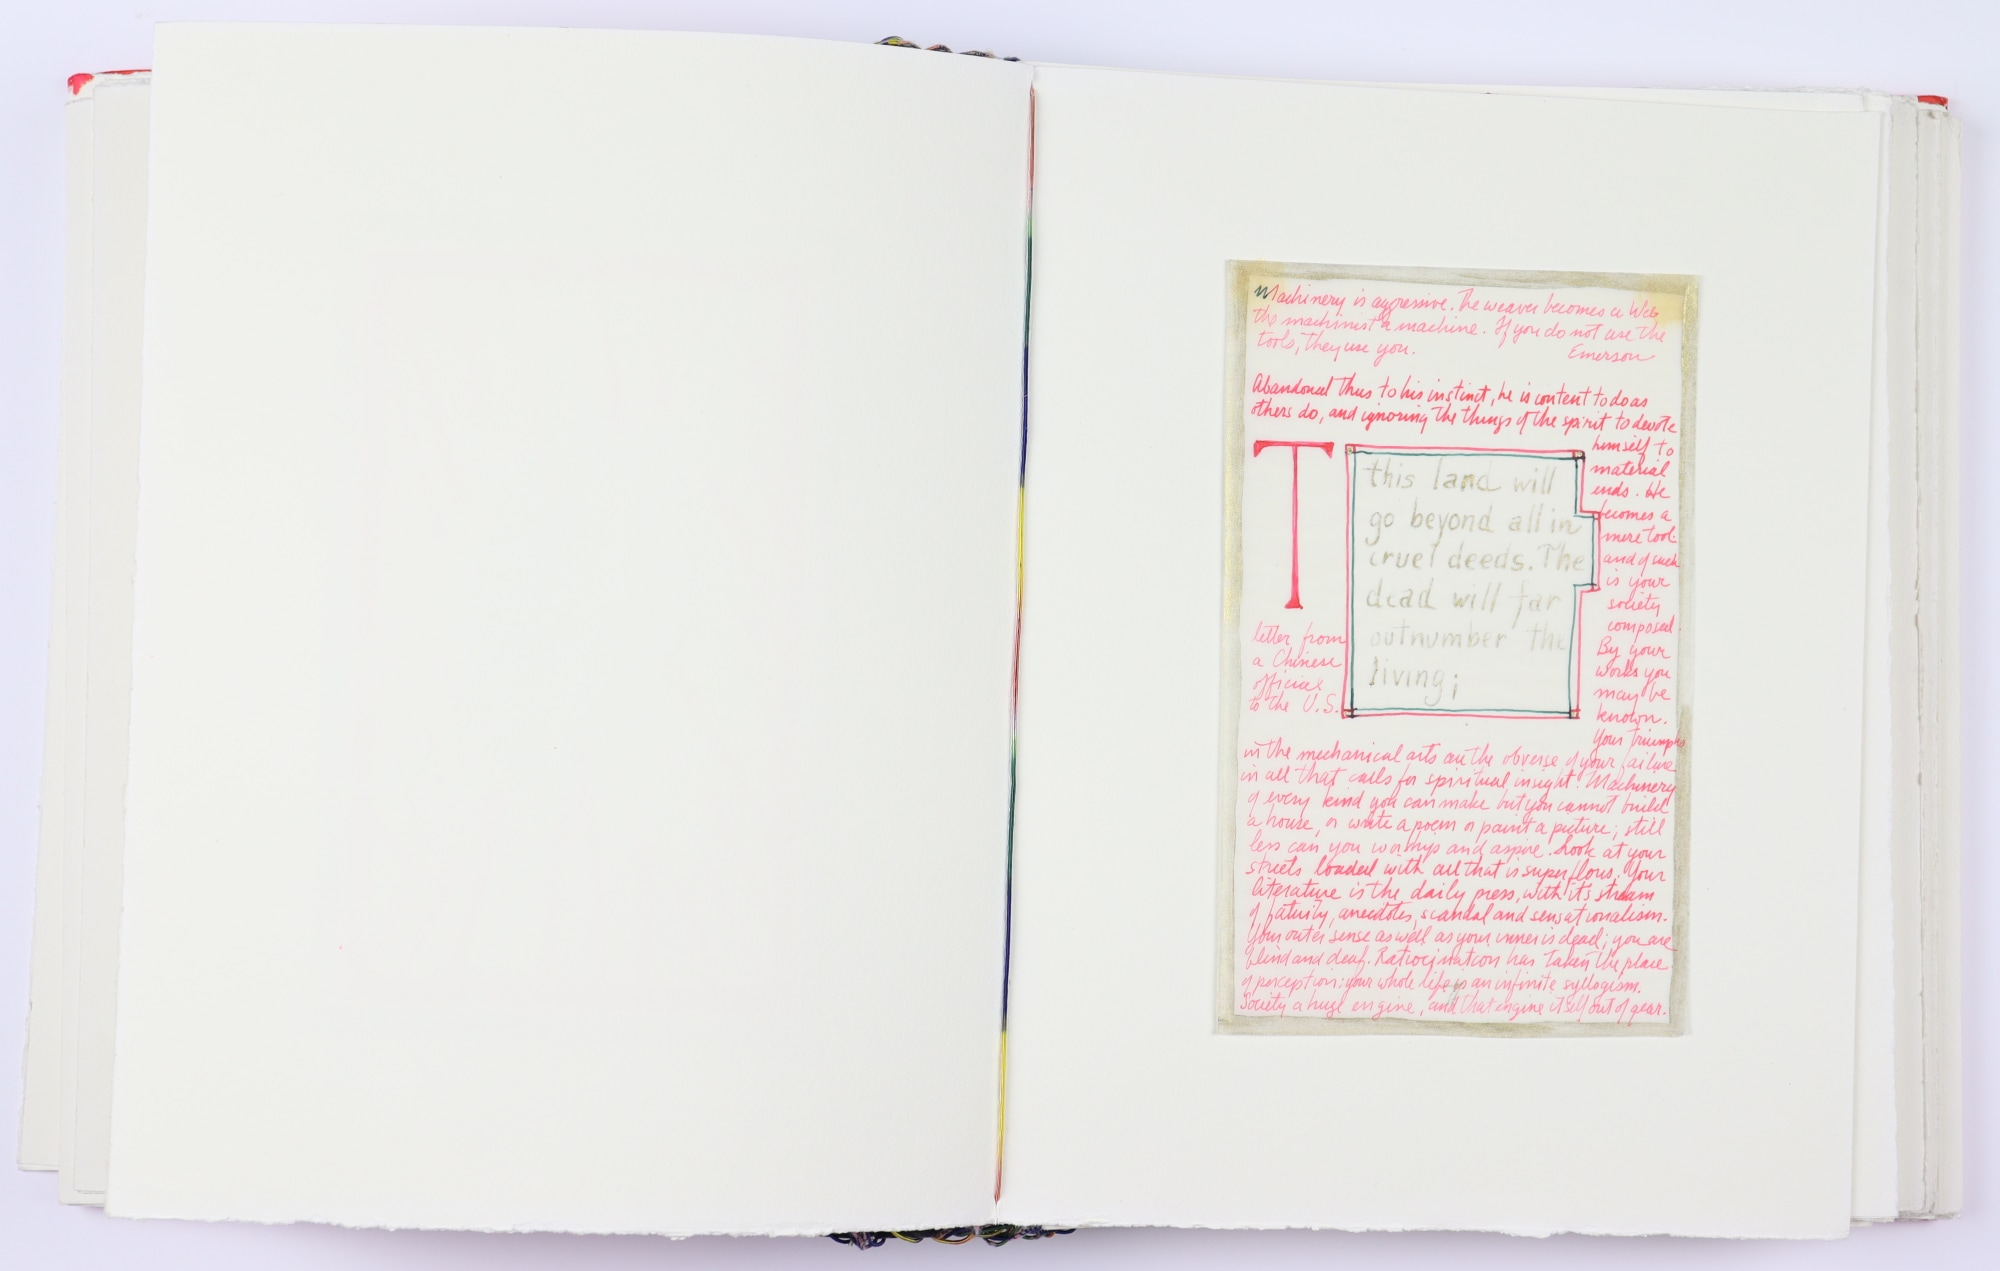 Machinery is aggressive. The weaver becomes a Web
the machinist a machine. If you do not use the
tools, they use you.
Emerson
Abandoned thus to his instinct, he is content to do as
others do, and ignoring the things of the spirit to devote
himself to
material
ends. He
becomes a
mere tool.
and of such
is your
society
composed.
By your
works you
may be
known.
Your triumphs
T
this land will
go beyond all in
cruel deeds. The
dead will far
outnumber the
living;
letter from
a Chinese
official
to the U.S.
in the mechanical arts are the obverse of your failure
in all that calls for spiritual insight. Machinery
of every kind you can make but you cannot build
a house, or write a poem or paint a picture; still
less can you worship and aspire. Look at your
streets loaded with all that is superflous. Your
literature is the daily press, with it's stream
of fatuity, anecdotes, scandal and sensationalism.
Your outer sense as well as your inner is dead; you are
blind and deaf. Ratiocination has taken the place
of perception: your whole life is an infinite syllogism.
Society a huge engine, and that engine itself out of gear.